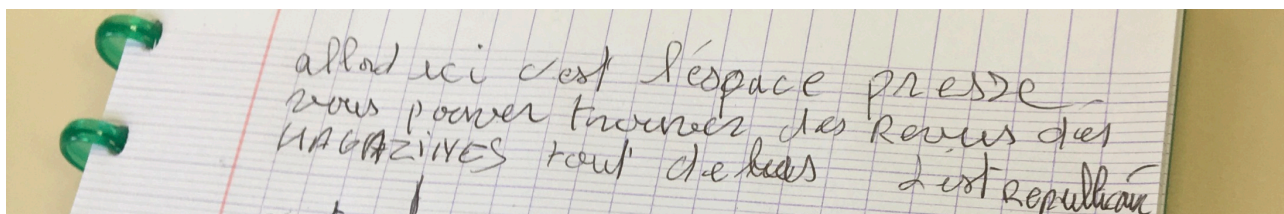 allod ici c'est l'éspace presse
vous pouver trouver des Revus des
MAGAZiNES tout de bas L'est Republicain